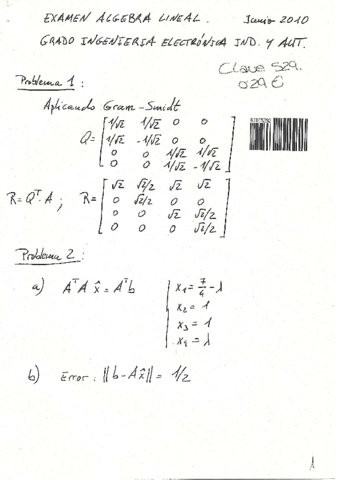 EXAMEN ALGEBRA LINEAL. Junio 2010
GRADO INGENIERIA ELECTRÓNICA IND. Y AUT.
Clave 529.
0'29 €
Problema 1:
Aplicando Gram-Smidt
Q = [ 1/√2 1/√2 0 0
1/√2 -1/√2 0 0
0 0 1/√2 1/√2
0 0 1/√2 -1/√2 ]
R = Qᵀ·A ; R = [ √2 √2/2 √2 √2
0 √2/2 0 0
0 0 √2 √2/2
0 0 0 √2/2 ]
Problema 2:
a) AᵀA x̂ = Aᵀb
x₁ = 7/4 - λ
x₂ = 1
x₃ = 1
x₄ = λ
b) Error: ||b-Ax̂|| = 1/2
1